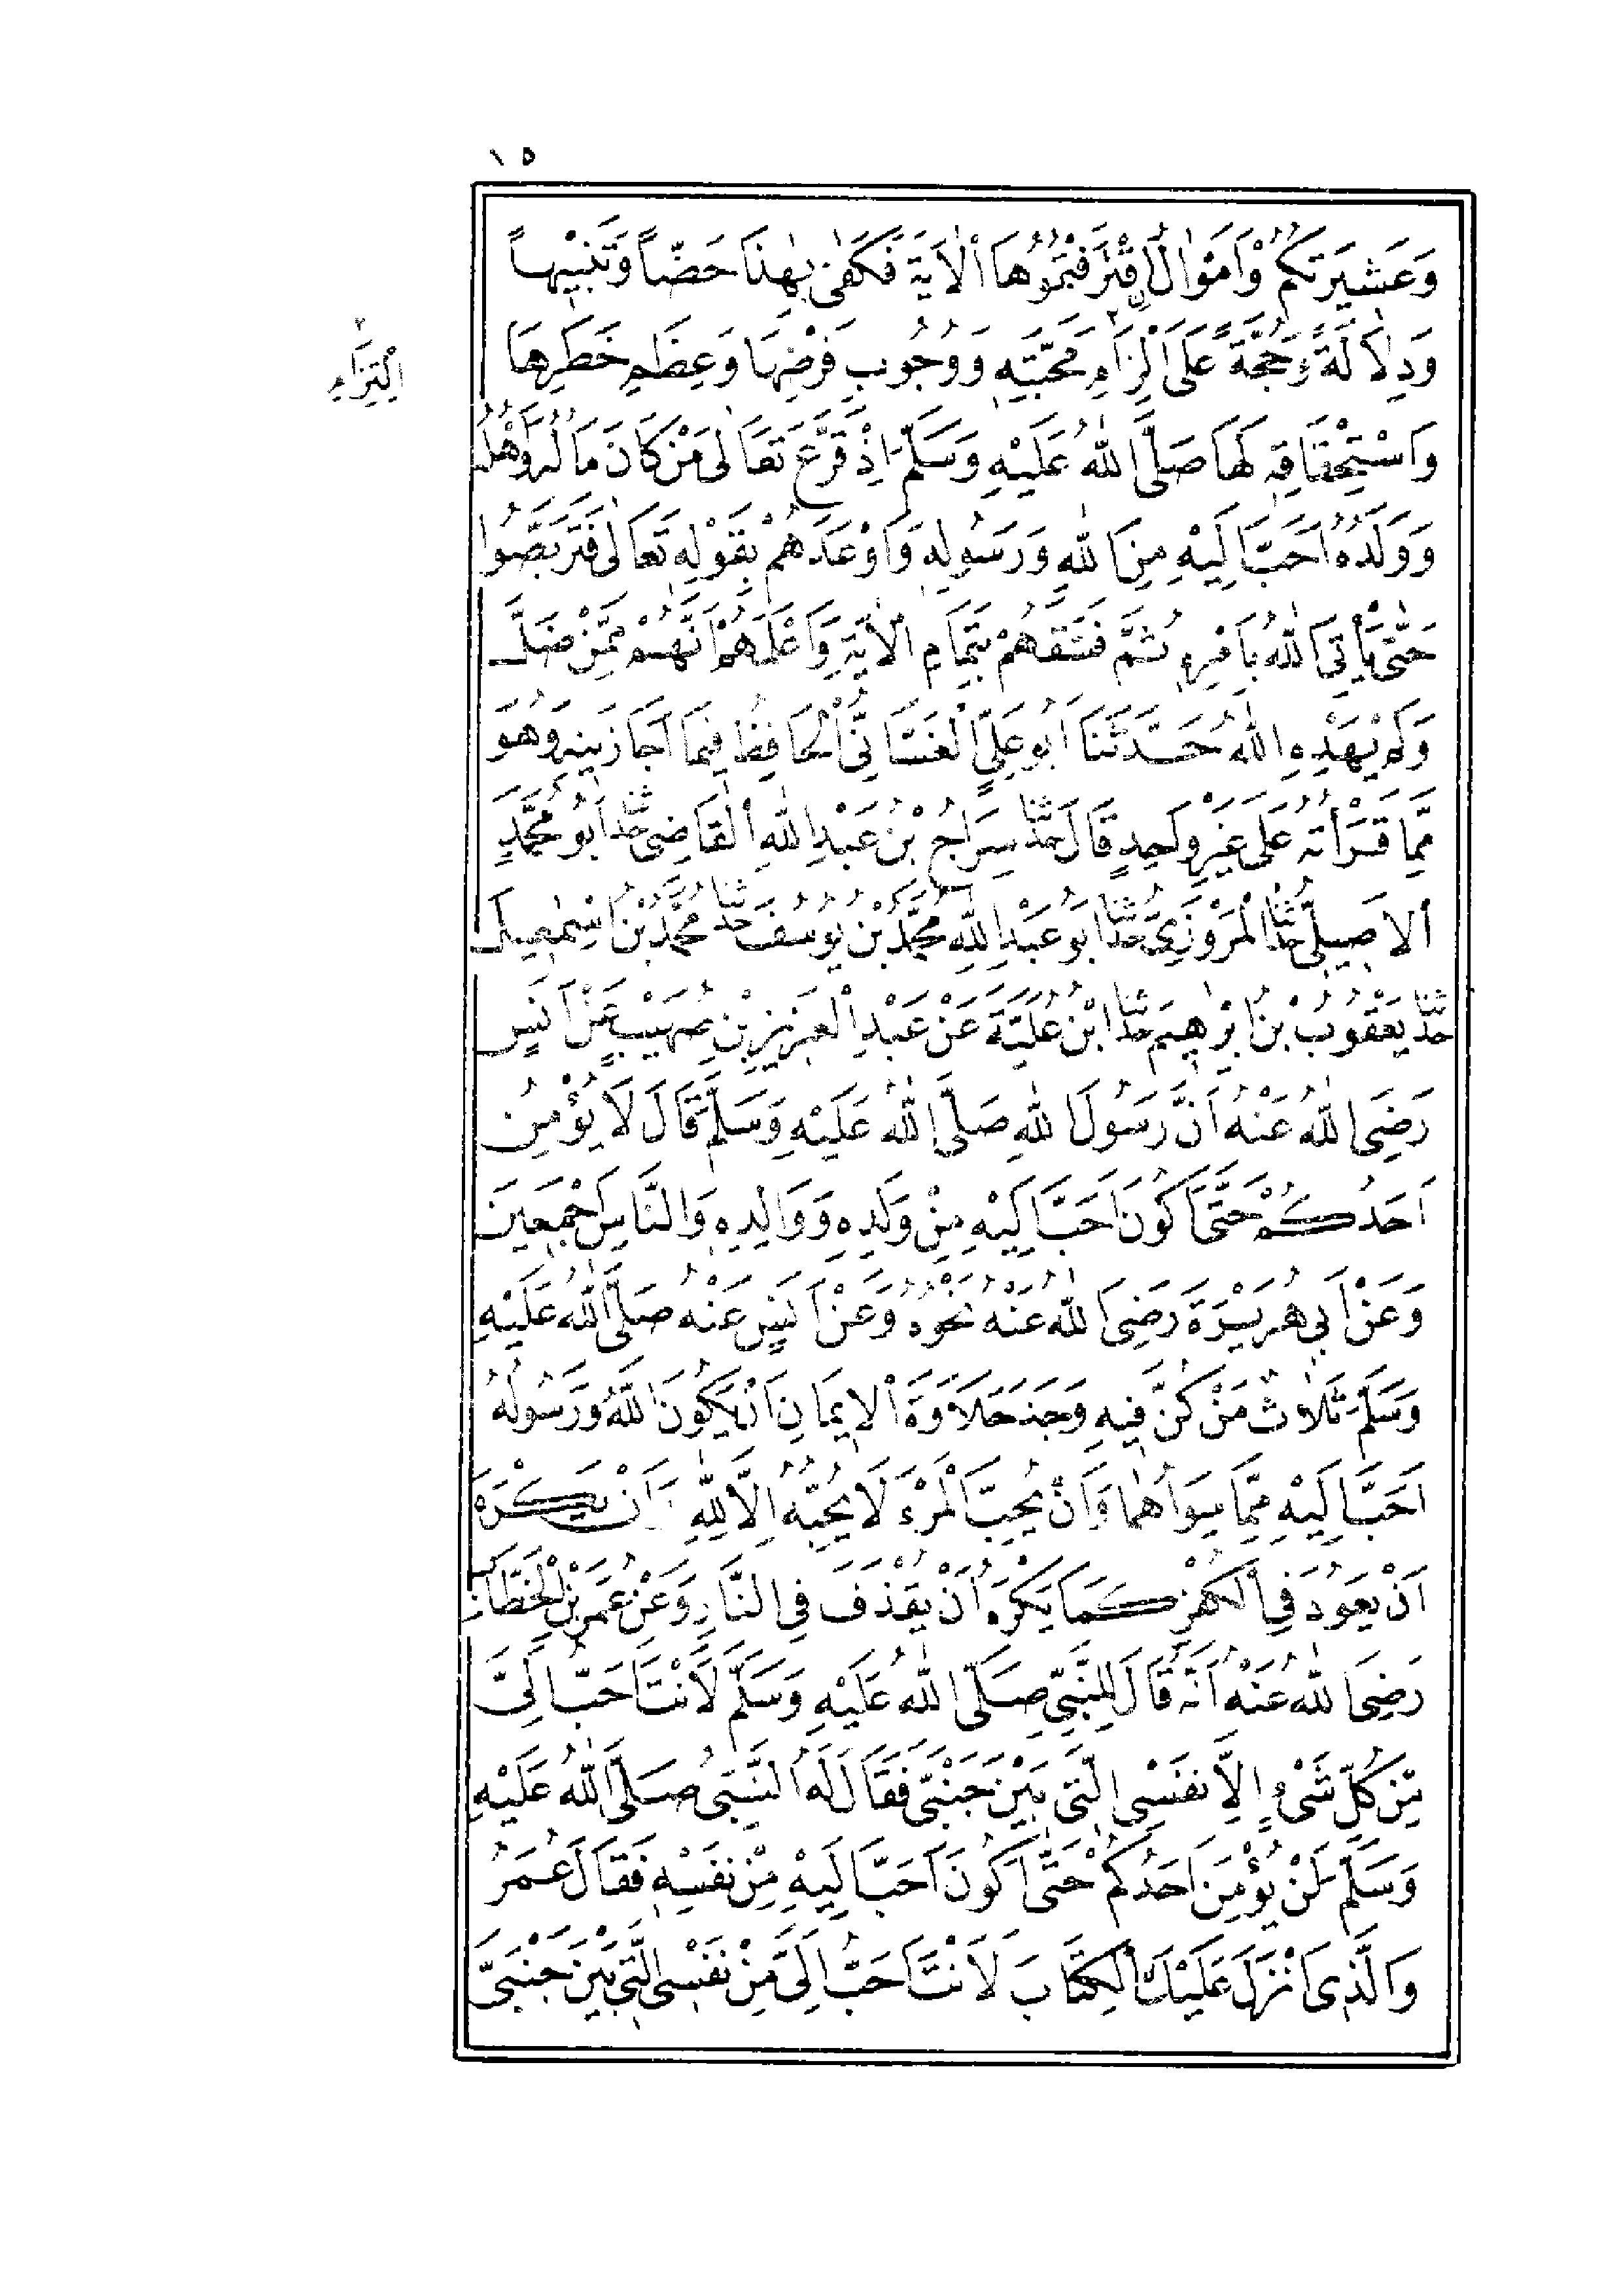 ١٥
وَعَشِيرَتُكُمْ وَاَمْوَالٌ اقْتَرَفْتُمُوهَا الْاٰيَةَ فَكَفٰى بِهٰذَا حَضّاً وَتَنْبِيْهاً
وَدِلَالَةً وَحُجَّةً عَلَى اِلْزَامِ مَحَبَّتِهِ وَوُجُوبِ فَرْضِهَا وَعِظَمِ خَطَرِهَا
اِلْتِزَامِ
وَاسْتِحْقَاقِهِ لَهَا صَلَّى اللّٰهُ عَلَيْهِ وَسَلَّمَ اِذْ قَرَّعَ تَعَالٰى مَنْ كَانَ مَالُهُ وَاَهْلُهُ
وَوَلَدُهُ اَحَبَّ اِلَيْهِ مِنَ اللّٰهِ وَرَسُولِهِ وَاَوْعَدَهُمْ بِقَوْلِهِ تَعَالٰى فَتَرَبَّصُوا
حَتّٰى يَأْتِىَ اللّٰهُ بِاَمْرِهِ ثُمَّ فَسَّقَهُمْ بِتَمَامِ الْاٰيَةِ وَاَعْلَمَهُمْ اَنَّهُمْ مِمَّنْ ضَلَّ
وَلَمْ يَهْدِهِ اللّٰهُ حَدَّثَنَا اَبُو عَلِىٍّ الْغَسَّانِىُّ الْحَافِظُ فِيمَا اَجَازَنِيهِ وَهُوَ
مِمَّا قَرَأْتُهُ عَلَى غَيْرِ وَاحِدٍ قَالَ حَدَّثَنَا سِرَاجُ بْنُ عَبْدِ اللّٰهِ الْقَاضِى حَدَّثَنَا اَبُو مُحَمَّدٍ
الْاَصِيلِىُّ حَدَّثَنَا الْمَرْوَزِىُّ حَدَّثَنَا اَبُو عَبْدِ اللّٰهِ مُحَمَّدُ بْنُ يُوسُفَ حَدَّثَنَا مُحَمَّدُ بْنُ اِسْمٰعِيلَ
حَدَّثَنَا يَعْقُوبُ بْنُ اِبْرٰهِيمَ حَدَّثَنَا ابْنُ عُلَيَّةَ عَنْ عَبْدِ الْعَزِيزِ بْنِ صُهَيْبٍ عَنْ اَنَسٍ
رَضِىَ اللّٰهُ عَنْهُ اَنَّ رَسُولَ اللّٰهِ صَلَّى اللّٰهُ عَلَيْهِ وَسَلَّمَ قَالَ لَا يُؤْمِنُ
اَحَدُكُمْ حَتّٰى اَكُونَ اَحَبَّ اِلَيْهِ مِنْ وَلَدِهِ وَوَالِدِهِ وَالنَّاسِ اَجْمَعِينَ
وَعَنْ اَبِى هُرَيْرَةَ رَضِىَ اللّٰهُ عَنْهُ نَحْوُهُ وَعَنْ اَنَسٍ عَنْهُ صَلَّى اللّٰهُ عَلَيْهِ
وَسَلَّمَ ثَلَاثٌ مَنْ كُنَّ فِيهِ وَجَدَ حَلَاوَةَ الْاِيمَانِ اَنْ يَكُونَ اللّٰهُ وَرَسُولُهُ
اَحَبَّ اِلَيْهِ مِمَّا سِوَاهُمَا وَاَنْ يُحِبَّ الْمَرْءَ لَا يُحِبُّهُ اِلَّا لِلّٰهِ وَاَنْ يَكْرَهَ
اَنْ يَعُودَ فِى الْكُفْرِ كَمَا يَكْرَهُ اَنْ يُقْذَفَ فِى النَّارِ وَعَنْ عُمَرَ بْنِ الْخَطَّابِ
رَضِىَ اللّٰهُ عَنْهُ اَنَّهُ قَالَ لِلنَّبِىِّ صَلَّى اللّٰهُ عَلَيْهِ وَسَلَّمَ لَاَنْتَ اَحَبُّ اِلَىَّ
مِنْ كُلِّ شَىْءٍ اِلَّا نَفْسِى الَّتِى بَيْنَ جَنْبَىَّ فَقَالَ لَهُ النَّبِىُّ صَلَّى اللّٰهُ عَلَيْهِ
وَسَلَّمَ لَنْ يُؤْمِنَ اَحَدُكُمْ حَتّٰى اَكُونَ اَحَبَّ اِلَيْهِ مِنْ نَفْسِهِ فَقَالَ عُمَرُ
وَالَّذِى اَنْزَلَ عَلَيْكَ الْكِتَابَ لَاَنْتَ اَحَبُّ اِلَىَّ مِنْ نَفْسِى الَّتِى بَيْنَ جَنْبَىَّ